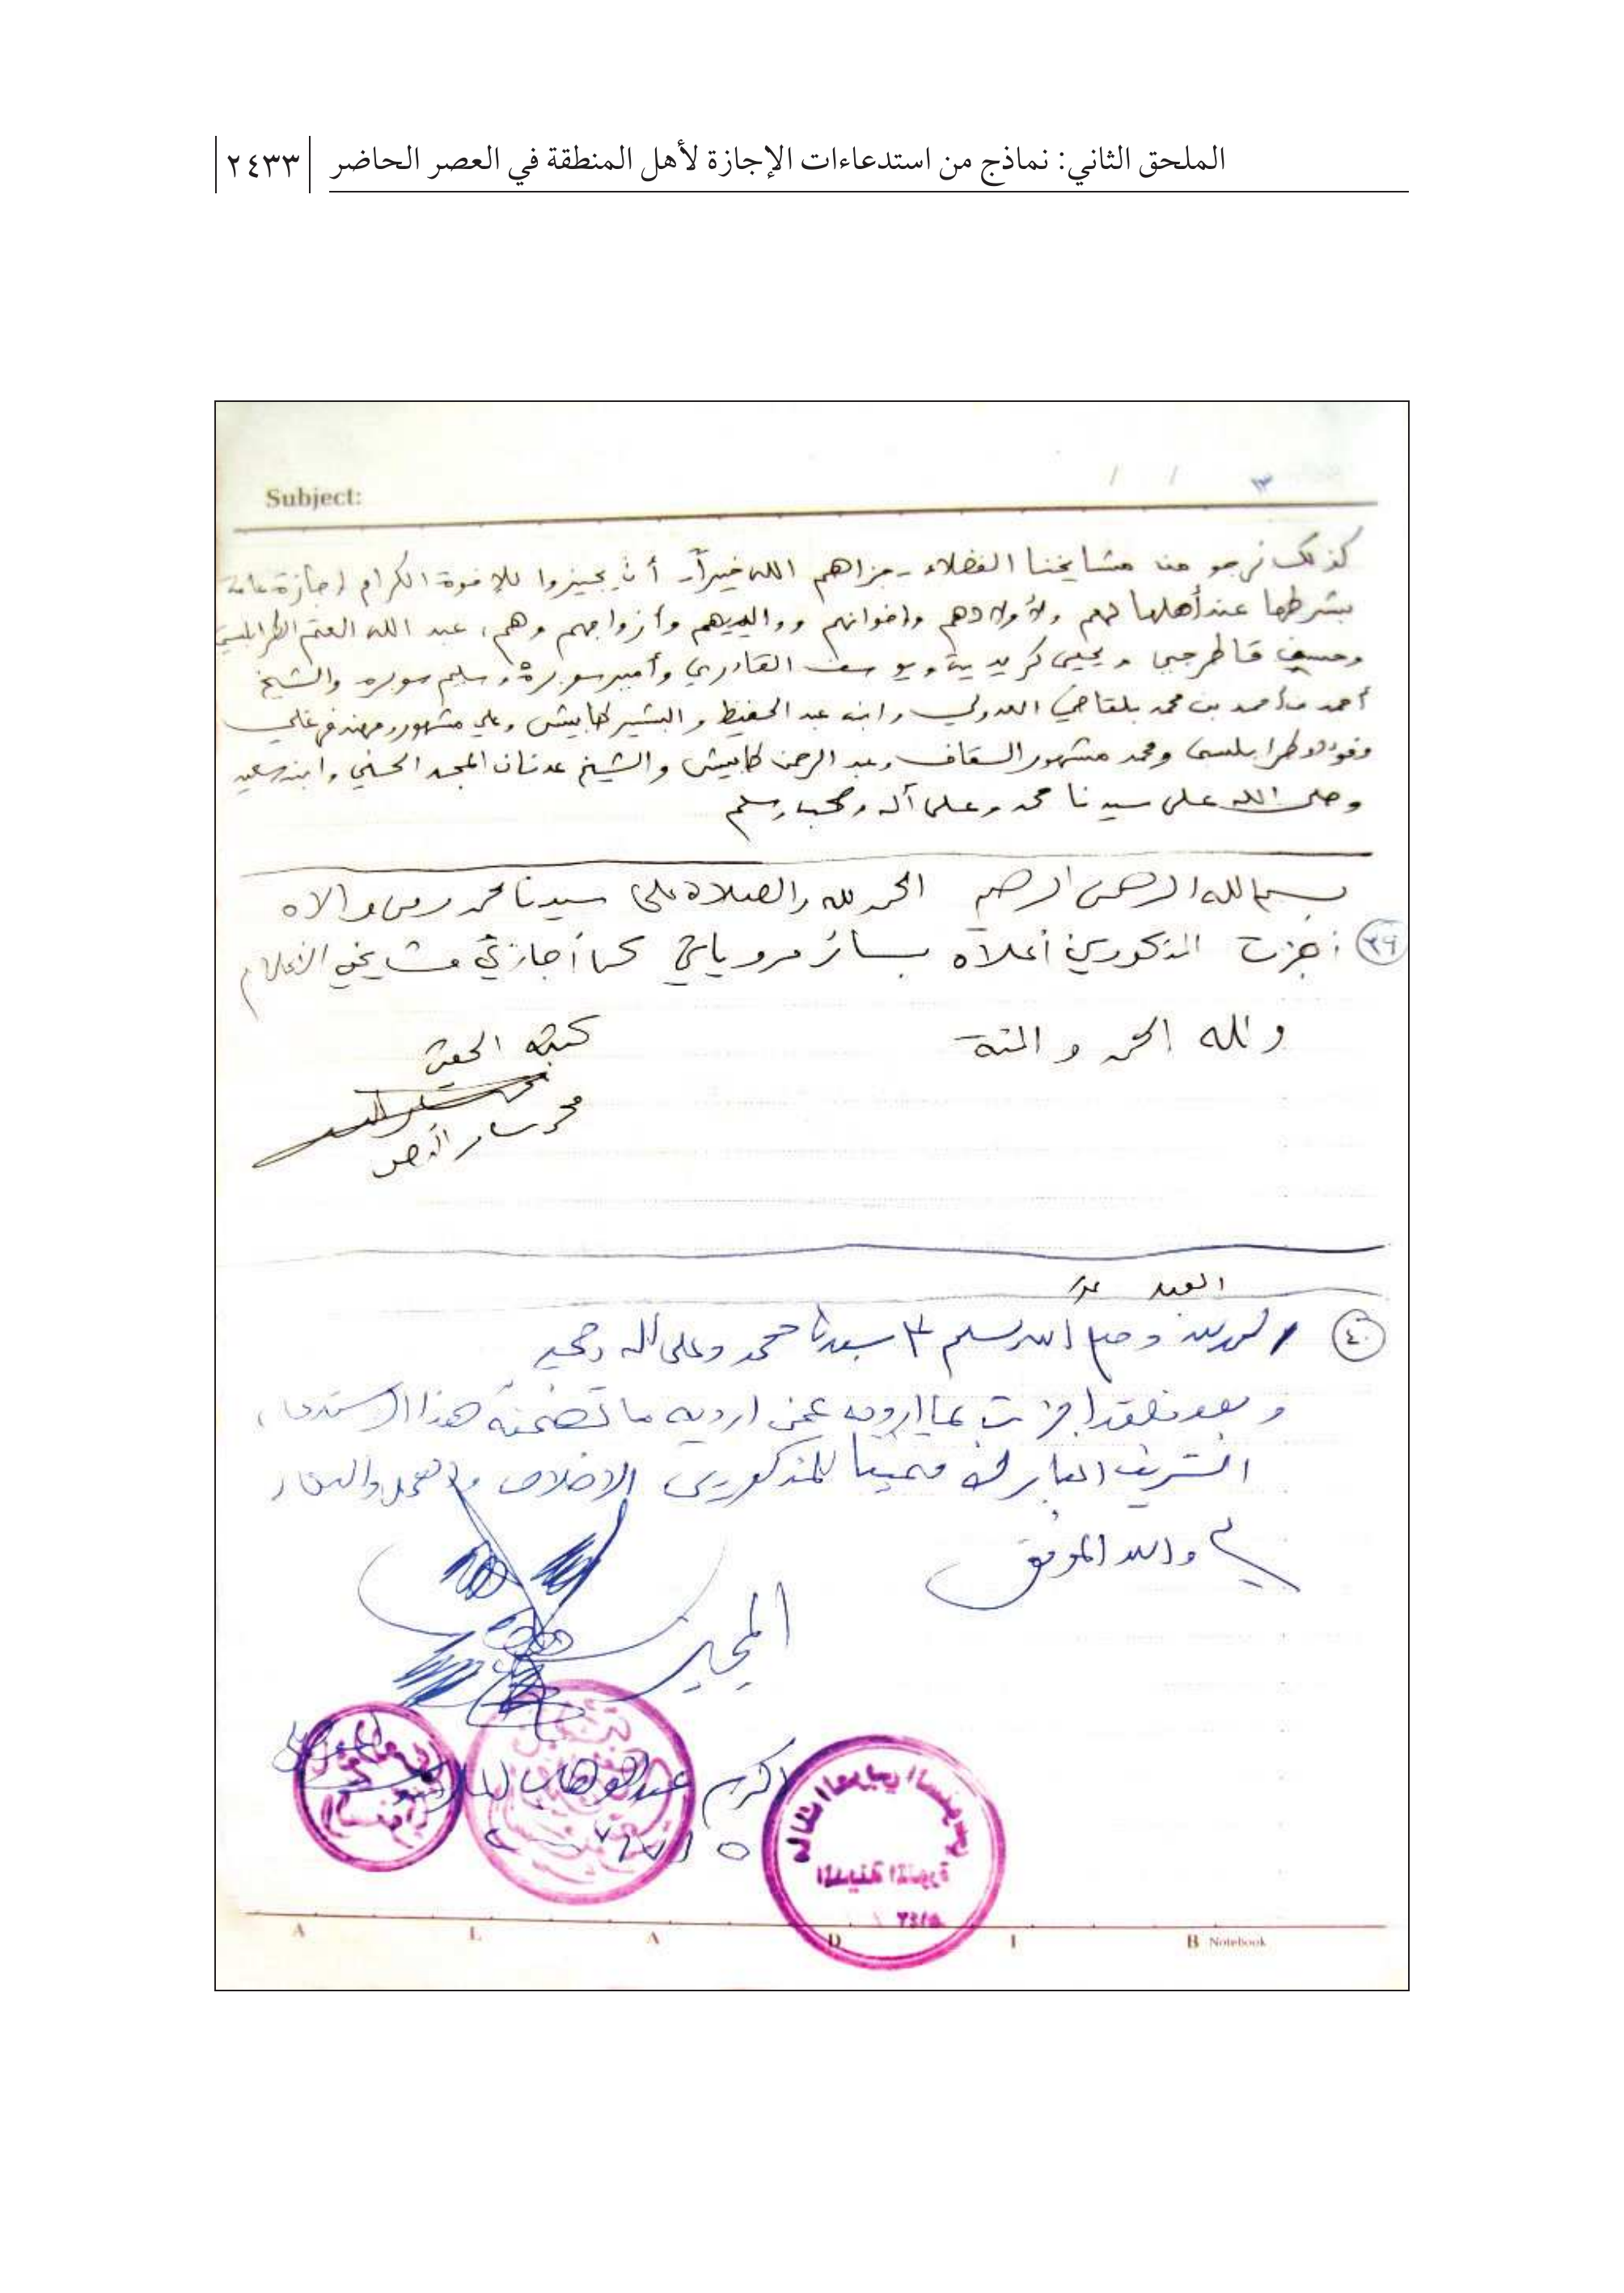 الملحق الثاني: نماذج من استدعاءات الإجازة لأهل المنطقة في العصر الحاضر ٢٤٣٣
Subject: / / ٣
كذلك نرجو من مشايخنا الفضلاء - جزاهم الله خيراً - أن يجيزوا للإخوة الكرام إجازة عامة
بشرطها عند أهلها لهم ولأولادهم وإخوانهم ووالديهم وأزواجهم وهم: عبد الله العتم الطرابلسي
قاطرجي ويحيى كريدية ويوسف القادري وأمير سوبرة وسليم سوبره والشيخ
أحمد بن محمد بلقاضي وابنه عبد الحفيظ والبشير كابيش وعلي مشهور ومهند فرغلي
طرابلسي ومحمد مشهور السقاف وعبد الرحمن كابيش والشيخ عدنان المجد الحسني وابنه سعيد
وصلى الله على سيدنا محمد وعلى آله وصحبه وسلم
بسم الله الرحمن الرحيم الحمد لله والصلاة على سيدنا محمد ومن والاه
٣٩ أجزت المذكورين أعلاه بسائر مروياتي كما أجازني مشايخي الأعلام
ولله الحمد والمنة
كتبه الحقير
محمد سامر النص
العبد
٤٠ الحمد لله وصلى الله وسلم على سيدنا محمد وعلى آله وصحبه
وبعد فلقد أجزت بما أرويه عمن أرويه ما تضمنه هذا الاستدعاء
الشريف المبارك متمنيا للمذكورين الإخلاص
والله الموفق
المجيز
أكرم عبد الوهاب
المدينة المنورة
A L A D I B Notebook